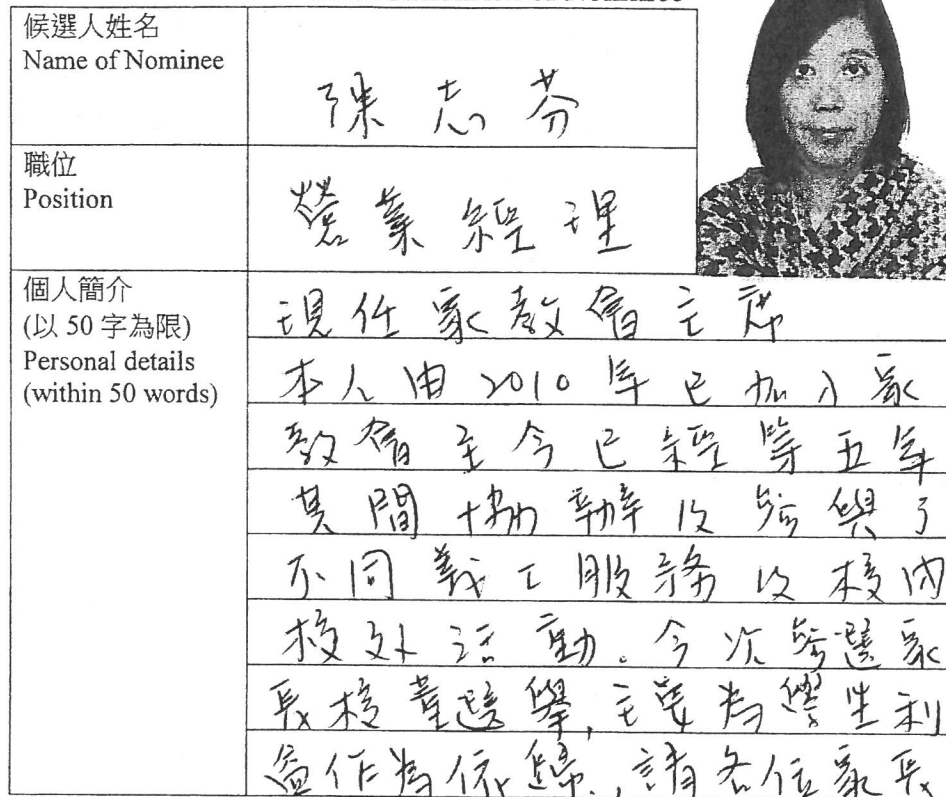 of Nominee
候選人姓名
Name of Nominee
陳志芬
職位
Position
營業經理
個人簡介
(以 50 字為限)
Personal details
(within 50 words)
現任家教會主席
本人由2010年已加入家
教會至今已經第五年
其間協辦及參與了
不同義工服務及校內
校外活動。今次參選家
長校董選舉,主要為學生利
益作為依歸,請各位家長